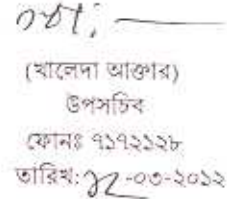 (খালেদা আক্তার)
উপসচিব
ফোনঃ ৭১৭২১২৮
তারিখ: -০৩-২০১২